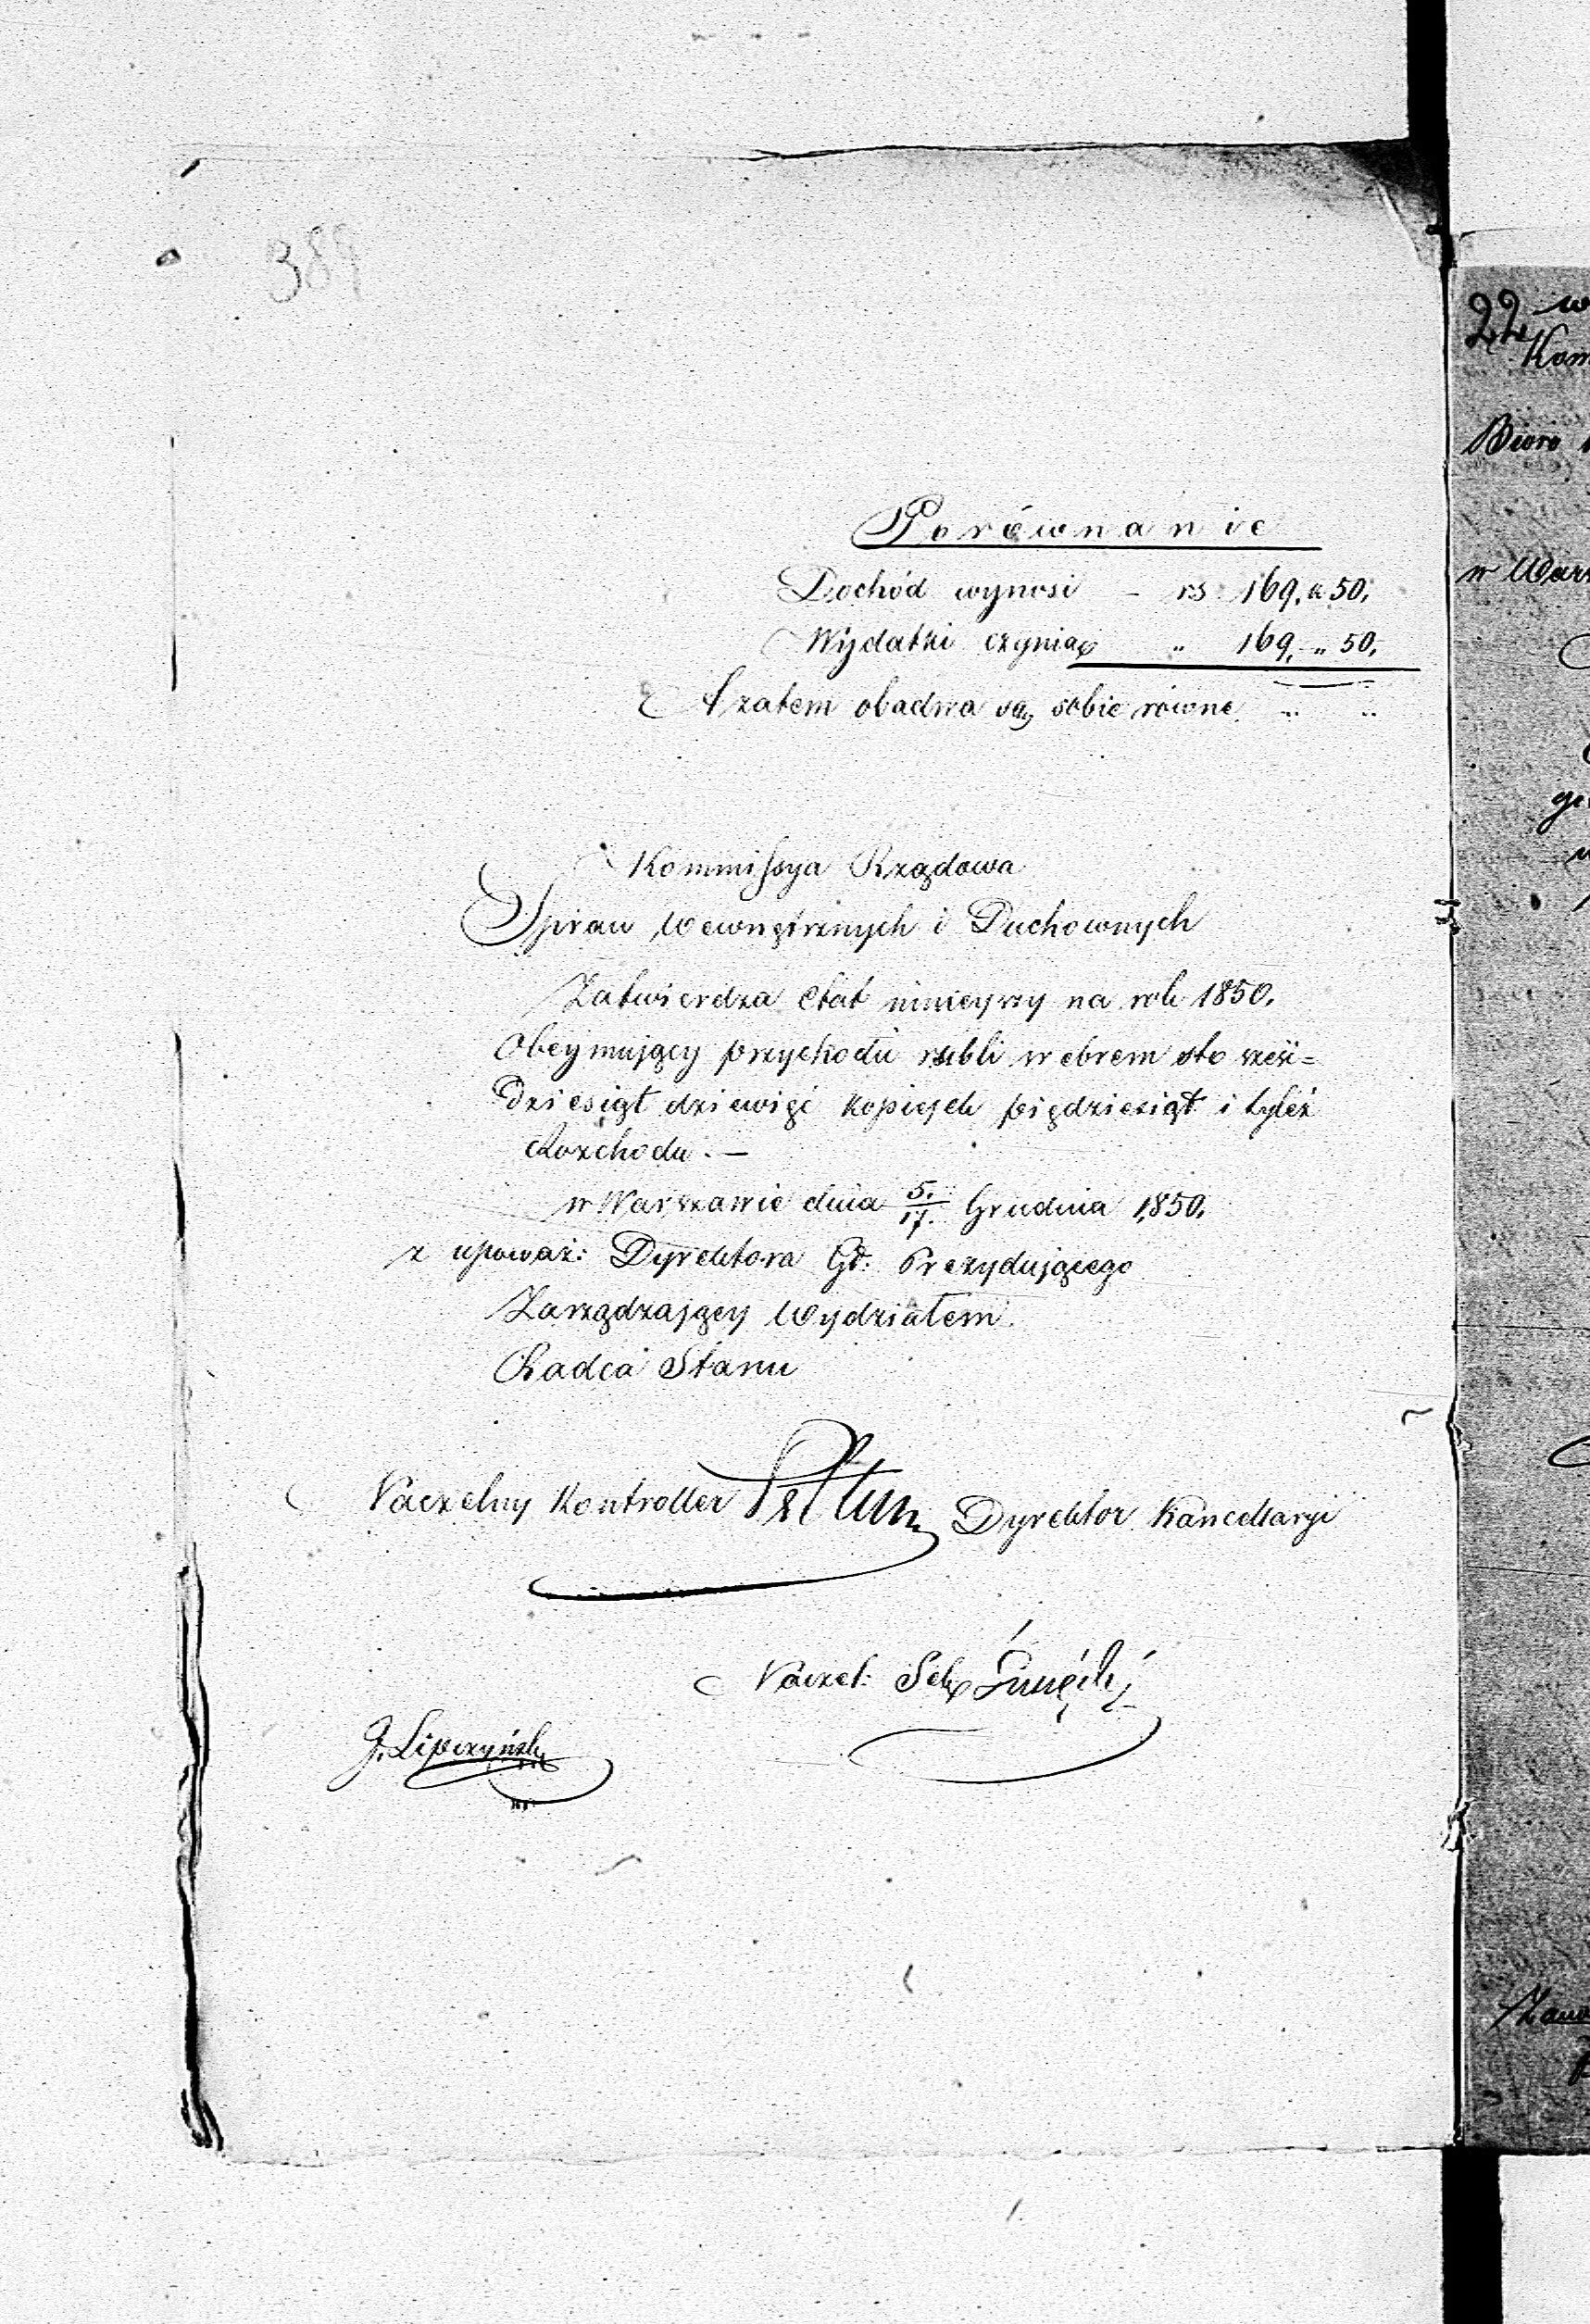 389
Porównanie
Dochód wynosi – rs. 169. k 50.
Wydatki czynią „ 169. „ 50.
A zatem obadwa są sobie równe „ „
Kommissya Rządowa
Spraw Wewnętrznych i Duchownych
Zatwierdza Etat ninieyszy na rok 1850.
Obeymujący przychodu rubli srebrem sto sześć=
dziesiąt dziewięć kopiejek piędziesiąt i tyleż
Rozchodu. —
w Warszawie dnia 5./17. Grudnia 1850.
z upoważ: Dyrektora Gł: Prezydującego
Zarządzający Wydziałem
Radca Stanu
Naczelny Kontroller Dyrektor Kancellaryi
Naczel: Sek
J. Lipczyński
22 w
Kom
Biuro
w Wars